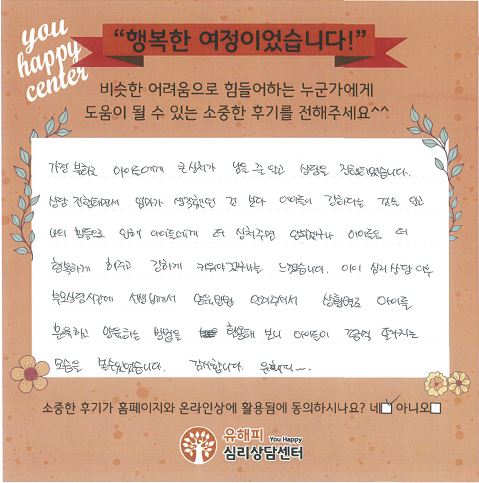 you
happy
center
“행복한 여정이었습니다!”
비슷한 어려움으로 힘들어하는 누군가에게
도움이 될 수 있는 소중한 후기를 전해주세요^^
가정 불화로 아이들에게 큰 상처가 남을 줄 알고 상담을 진행하였습니다.
상담 진행하면서 엄마가 생각했던 것 보다 아이들이 강하다는 것을 알고
나의 힘듦으로 인해 아이들에게 더 상처주면 안되겠구나 아이들을 더
행복하게 해주고 강하게 키워야겠구나를 느꼈습니다. 아이 심리상담 이후
부모상담시간에 선생님께서 양육방법 알려주셔서 상황별로 아이를
훈육하고 양육하는 방법을 활용해 보니 아이들이 점점 좋아지는
모습을 볼수있었습니다. 감사합니다. 유해피~
소중한 후기가 홈페이지와 온라인상에 활용됨에 동의하시나요? 네 아니오
유해피 You Happy
심리상담센터